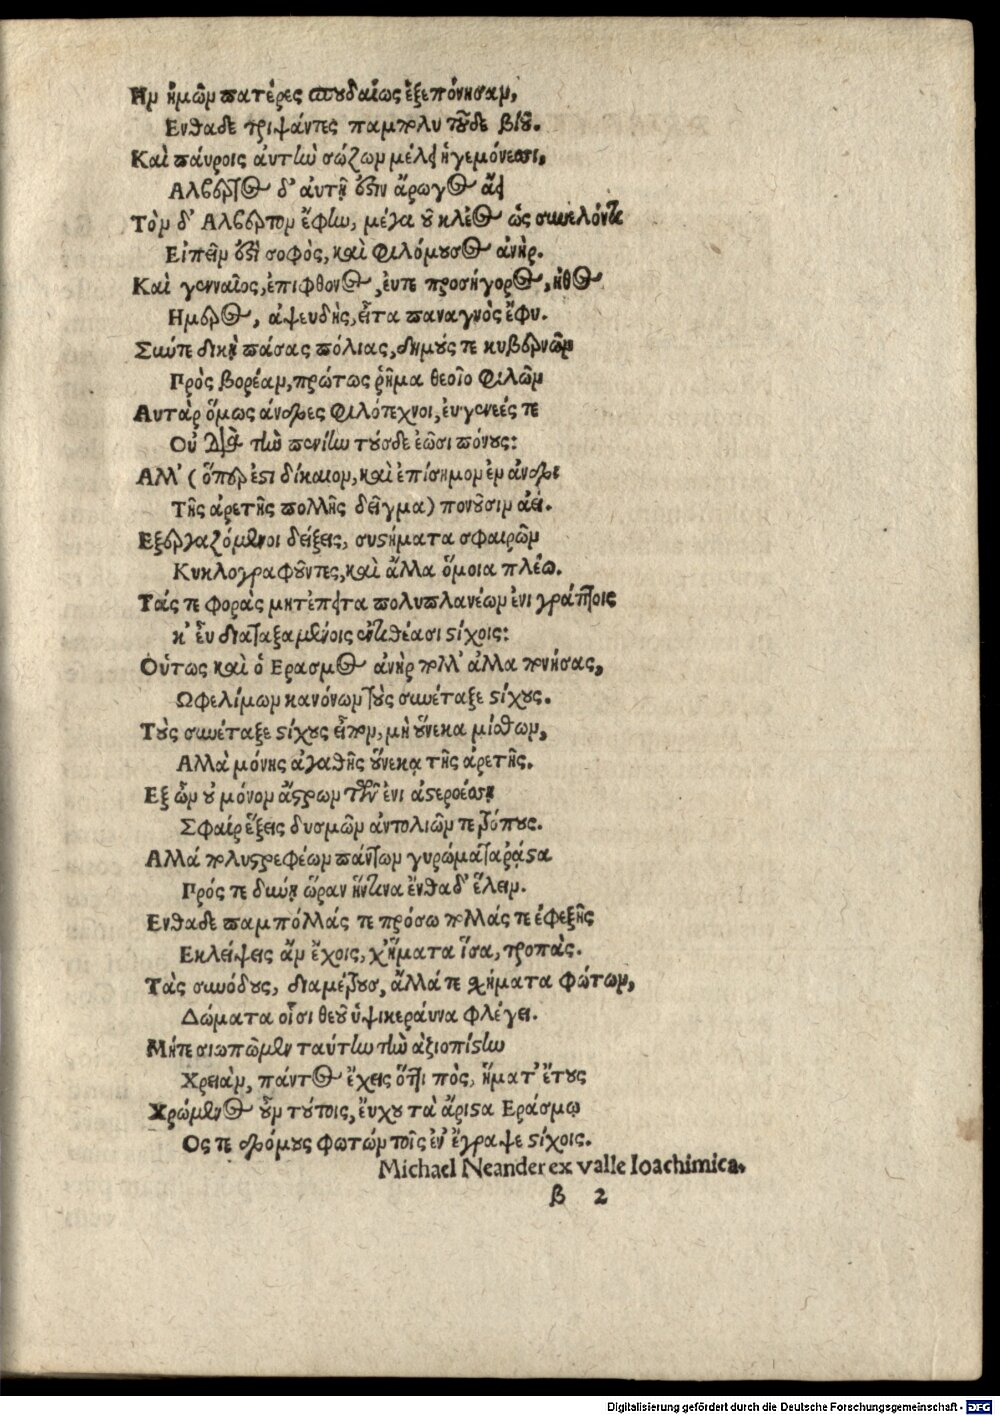 Ην ἡμῶν πατέρες σπουδαίως ἐξεπόνησαν,
Ενθάδε τρίψαντες παμπολὺ τοῦδε βίου.
Καὶ παύροις ἀυτὴν σώζων μέλει ἡγεμόνεσσι,
Αλβερτος δ' ἀυτῇ ἐστὶν ἄρωγος ἄει
Τὸν δ' Αλβερτον ἔφην, μέγα οὗ κλέος ὡς συνελόντι
Ειπεῖν ἐστὶ σοφὸς, καὶ φιλόμουσος ἀνὴρ.
Καὶ γενναῖος, ἐπιφθονος, ἐυτε προσήγορος, ἠθος
Ημερος, ἀψευδὴς, εἶτα παναγνὸς ἔφυ.
Σὺν τε δίκῃ πάσας πόλιας, δημούς τε κυβερνῶν
Πρὸς βορέαν, πρώτως ῥῆμα θεοῖο φιλῶν
Αυτὰρ ὅμως ἄνδρες φιλότεχνοι, ἐυγενεές τε
Οὐ διὰ τὴν πενίην τούσδε ἐῶσι πόνους:
Αλλ' (ὅπερ ἐστι δίκαιον, καὶ ἐπίσημον ἐν ἀνδρι
Τῆς ἀρετῆς πολλῆς δεῖγμα) πονοῦσιν ἀεί.
Εξεργαζόμενοι δείξεις, συστήματα σφαιρῶν
Κυκλογραφοῦντες, καὶ ἄλλα ὅμοια πλέω.
Τάς τε φορὰς μητέπειτα πολυπλανέων ἐνι γράπτοις
κ' ἐυ διαταξαμένοις ἐντιθέασι στίχοις:
Οὕτως καὶ ὁ Ερασμος ἀνὴρ πολλ' ἀλλα πονήσας,
Ωφελίμων κανόνων τοὺς συνέταξε στίχους.
Τοὺς συνέταξε στίχους εἶπον, μὴ οὕνεκα μίσθων,
Αλλὰ μόνης ἀγαθῆς οὕνεκα τῆς ἀρετῆς.
Εξ ὧν οὐ μόνον ἄστρων τῶν ἐνι ἀστεροέσσῃ
Σφαίρ ἕξεις δυσμῶν ἀντολιῶν τε τρόπους.
Αλλά πολυστρεφέων πάντων γυρώματ' ἄριστα
Πρός τε δικὴν ὥραν ἥντινα ἔνθαδ' ἕλειν.
Ενθαδε παμπόλλάς τε πρόσω πολλάς τε ἐφεξῆς
Εκλείψεις ἂν ἔχοις, χ' ἥματα ἴσα, τροπὰς.
Τὰς συνόδους, διαμέτρους, ἄλλά τε σχήματα φώτων,
Δώματα οἷσι θεοῦ ὑψικεράυνα φλέγει.
Μήτε σιωπῶμεν ταύτην τὴν ἀξιοπίστην
Χρειὰν, πάντος ἔχεις ὅττι πὸς, ἥματ' ἔτους
Χρώμενος οὖν τούτοις, ἔυχου τὰ ἄριστα Εράσμῳ
Ος τε δρόμους φωτῶν τοῖς ἐν' ἔγραψε στίχοις.
Michael Neander ex valle Ioachimica.
β 2
Digitalisierung gefördert durch die Deutsche Forschungsgemeinschaft - DFG